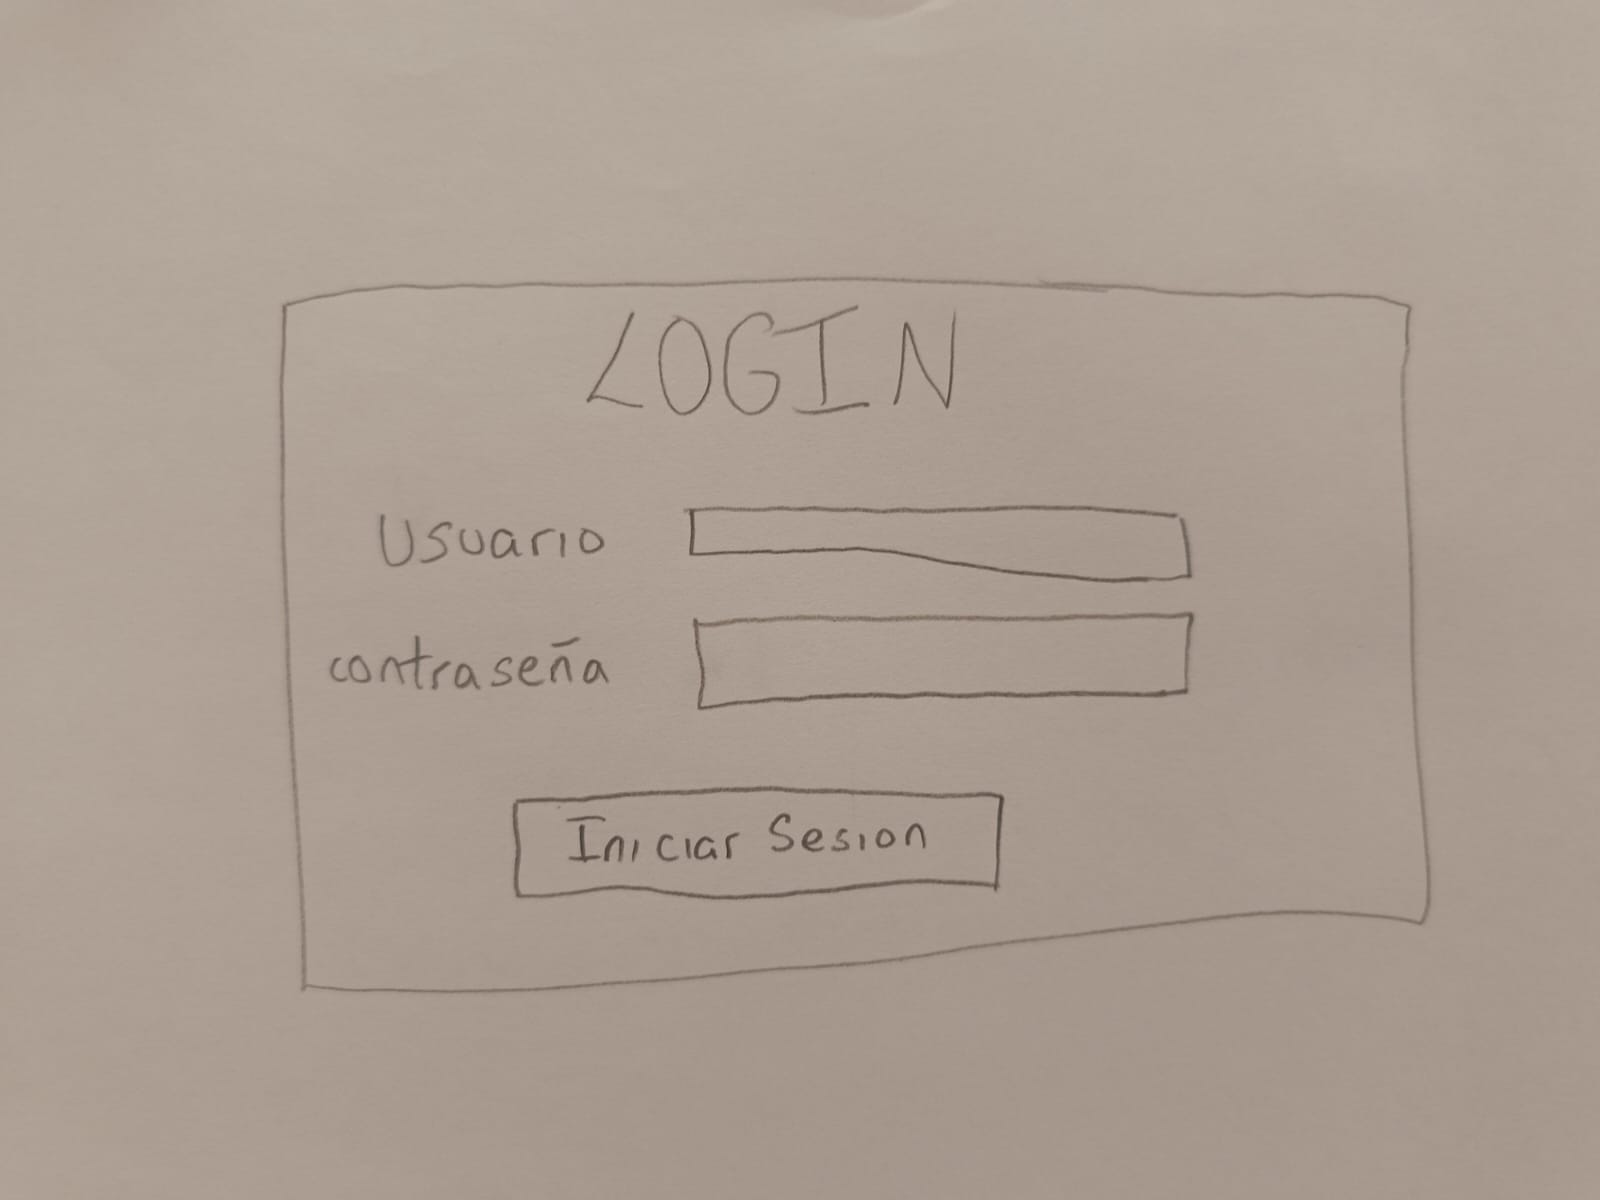 LOGIN
Usuario
contraseña
Iniciar Sesion